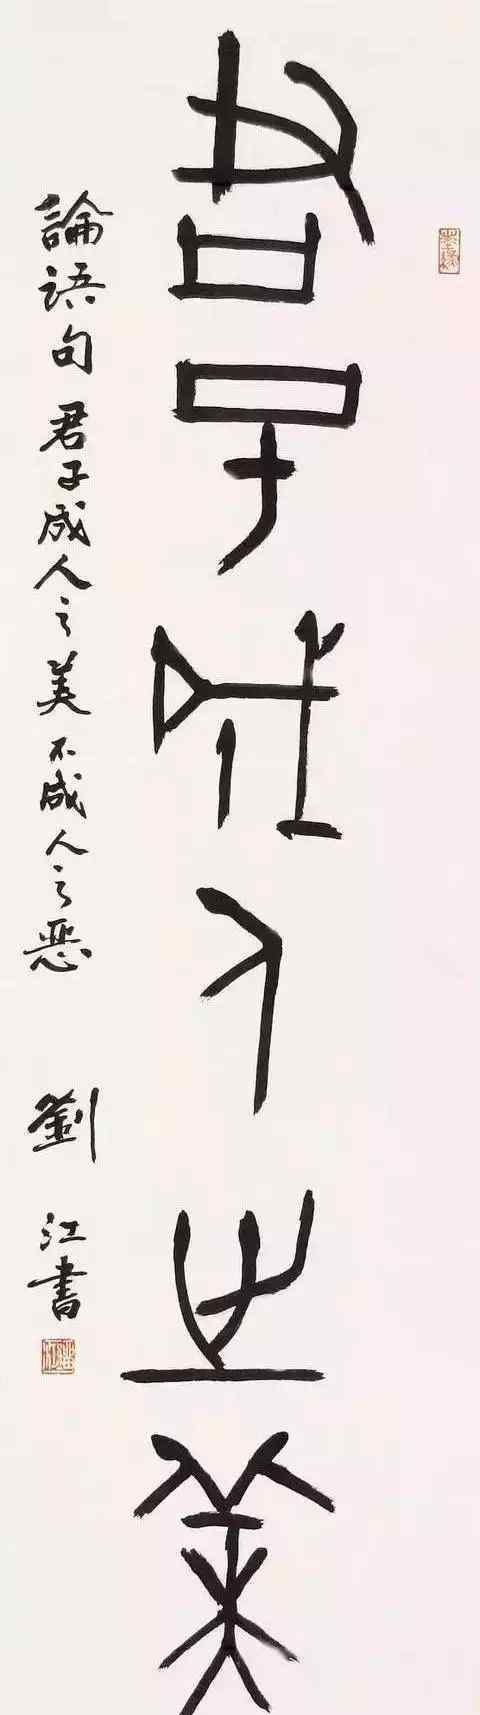 君子成人之美
論语句 君子成人之美不成人之恶
劉江書